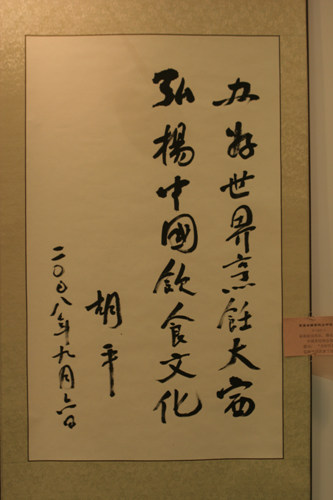 办好世界烹飪大赛
弘楊中國飲食文化
胡平
二〇〇八年九月六日